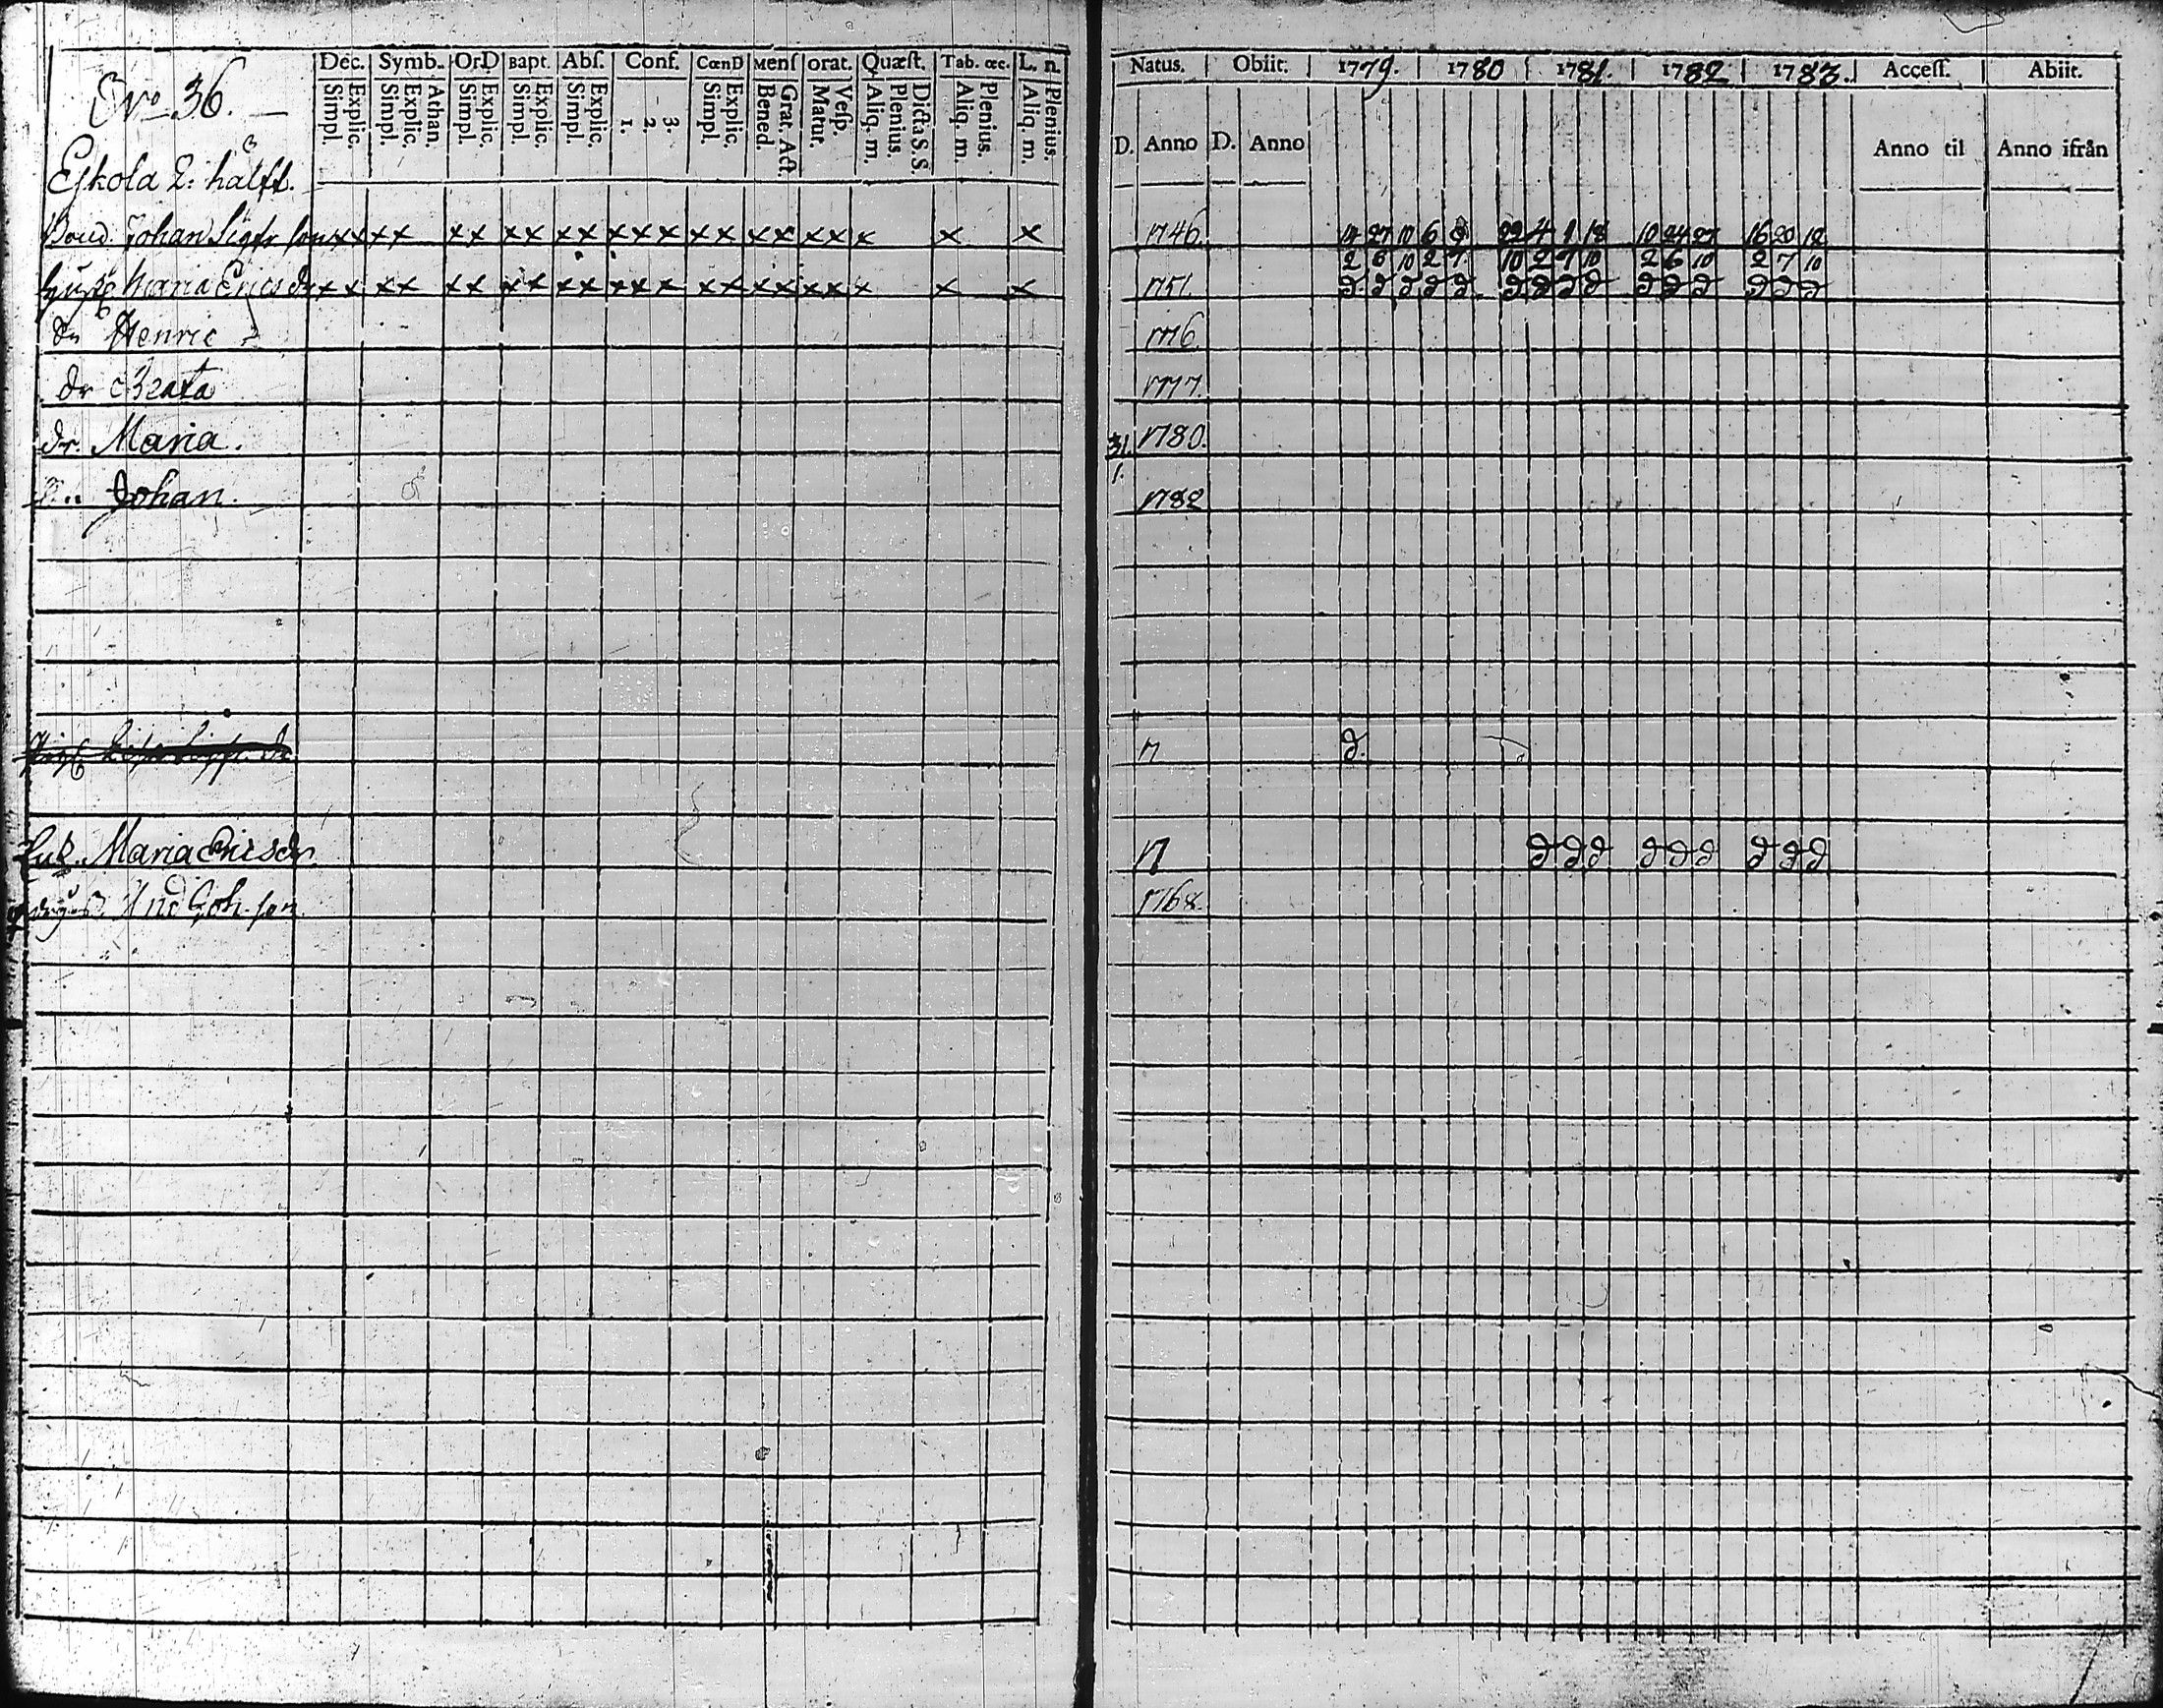 Dec. Symb. OrD Bapt. Abſ. Conf. CœnD Menſ orat. Quæſt. Tab. œc. L. n.
Simpl. Explic. Simpl. Explic. Athan. Simpl. Explic. Simpl. Explic. Simpl. Explic. 1. 2. 3. Simpl. Explic. Bened. Grat. Act. Matur. Veſp. Aliq. m. Plenius. Dicta S.S. Aliq. m. Plenius. Aliq. m. Plenius.
No 36.
Eskola 2: hälft.
Bond. Johan Sigfr son x x x x x x x x x x x x x x x x x x x x x x
Hust Maria Erics dr x x x x x x x x x x x x x x x x x x x x x x
Henric
dr Beata
dr. Maria.
Johan.
Maria Ericsdr
And Joh. son
Natus. Obiit. 1779. 1780 1781. 1782 1783. Acceſſ. Abiit.
D. Anno D. Anno Anno til Anno ifrån
1746. 27 10 6 22 4 18 10 24 27 16 20 18
2 6 10 2 7 10 2 7 10 2 6 10 2 7 10
1751. D D D D D D D D D D D D D D D
1776.
1777.
31. 1780.
1.
1782
17 D.
17 D D D D D D D D D
1768.